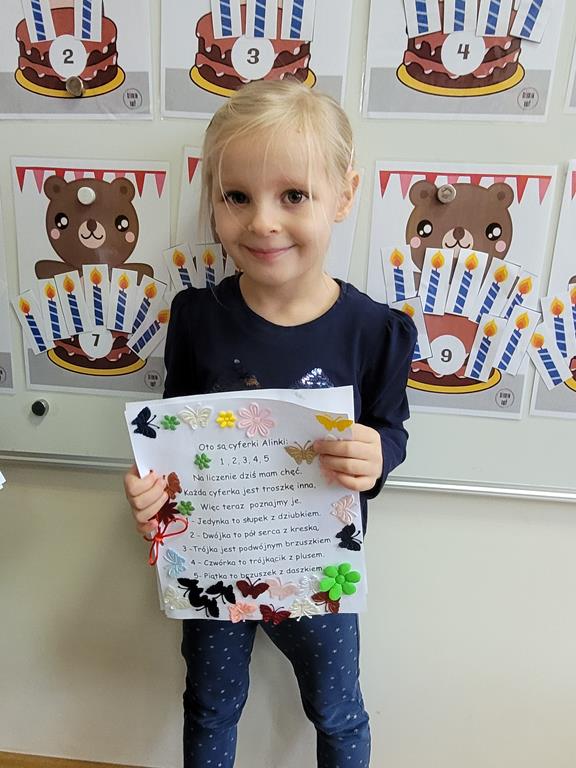 2
3
4
7
9
Oto są cyferki Alinki:
1, 2, 3, 4, 5
Na liczenie dziś mam chęć.
Każda cyferka jest troszkę inna,
Więc teraz poznajmy je.
- Jedynka to słupek z dziubkiem.
2 - Dwójka to pół serca z kreską,
3 -Trójka jest podwójnym brzuszkiem
4 - Czwórka to trójkącik z plusem.
5- Piątka to brzuszek z daszkiem